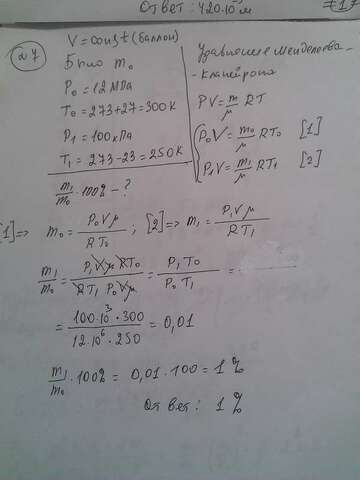 Ответ: 420·10 м
№7
V = const (баллон)
Было m₀
P₀ = 12 МПа
T₀ = 273+27 = 300 К
P₁ = 100 кПа
T₁ = 273-23 = 250 К
m₁/m₀ · 100% - ?
Уравнение Менделеева-
-Клапейрона
PV = m/μ RT
P₀V = m₀/μ RT₀ [1]
P₁V = m₁/μ RT₁ [2]
[1] => m₀ = P₀Vμ/RT₀ ; [2] => m₁ = P₁Vμ/RT₁
m₁/m₀ = P₁Vμ RT₀/RT₁ P₀Vμ = P₁T₀/P₀T₁ =
= 100·10³·300/12·10⁶·250 = 0,01
m₁/m₀ · 100% = 0,01·100 = 1%
Ответ: 1%